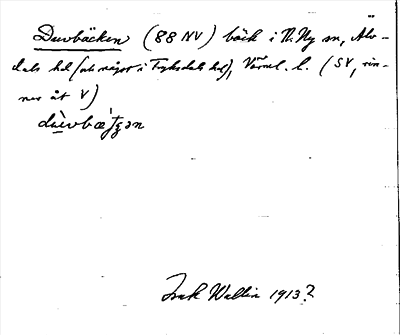 Duvbäcken (88 NV) bäck i N. Ny sn, Älv-
dals hd (och något i Fryksdals hd), Värml. l. (SV, rin-
ner åt V)
Isak Wallin 1913?